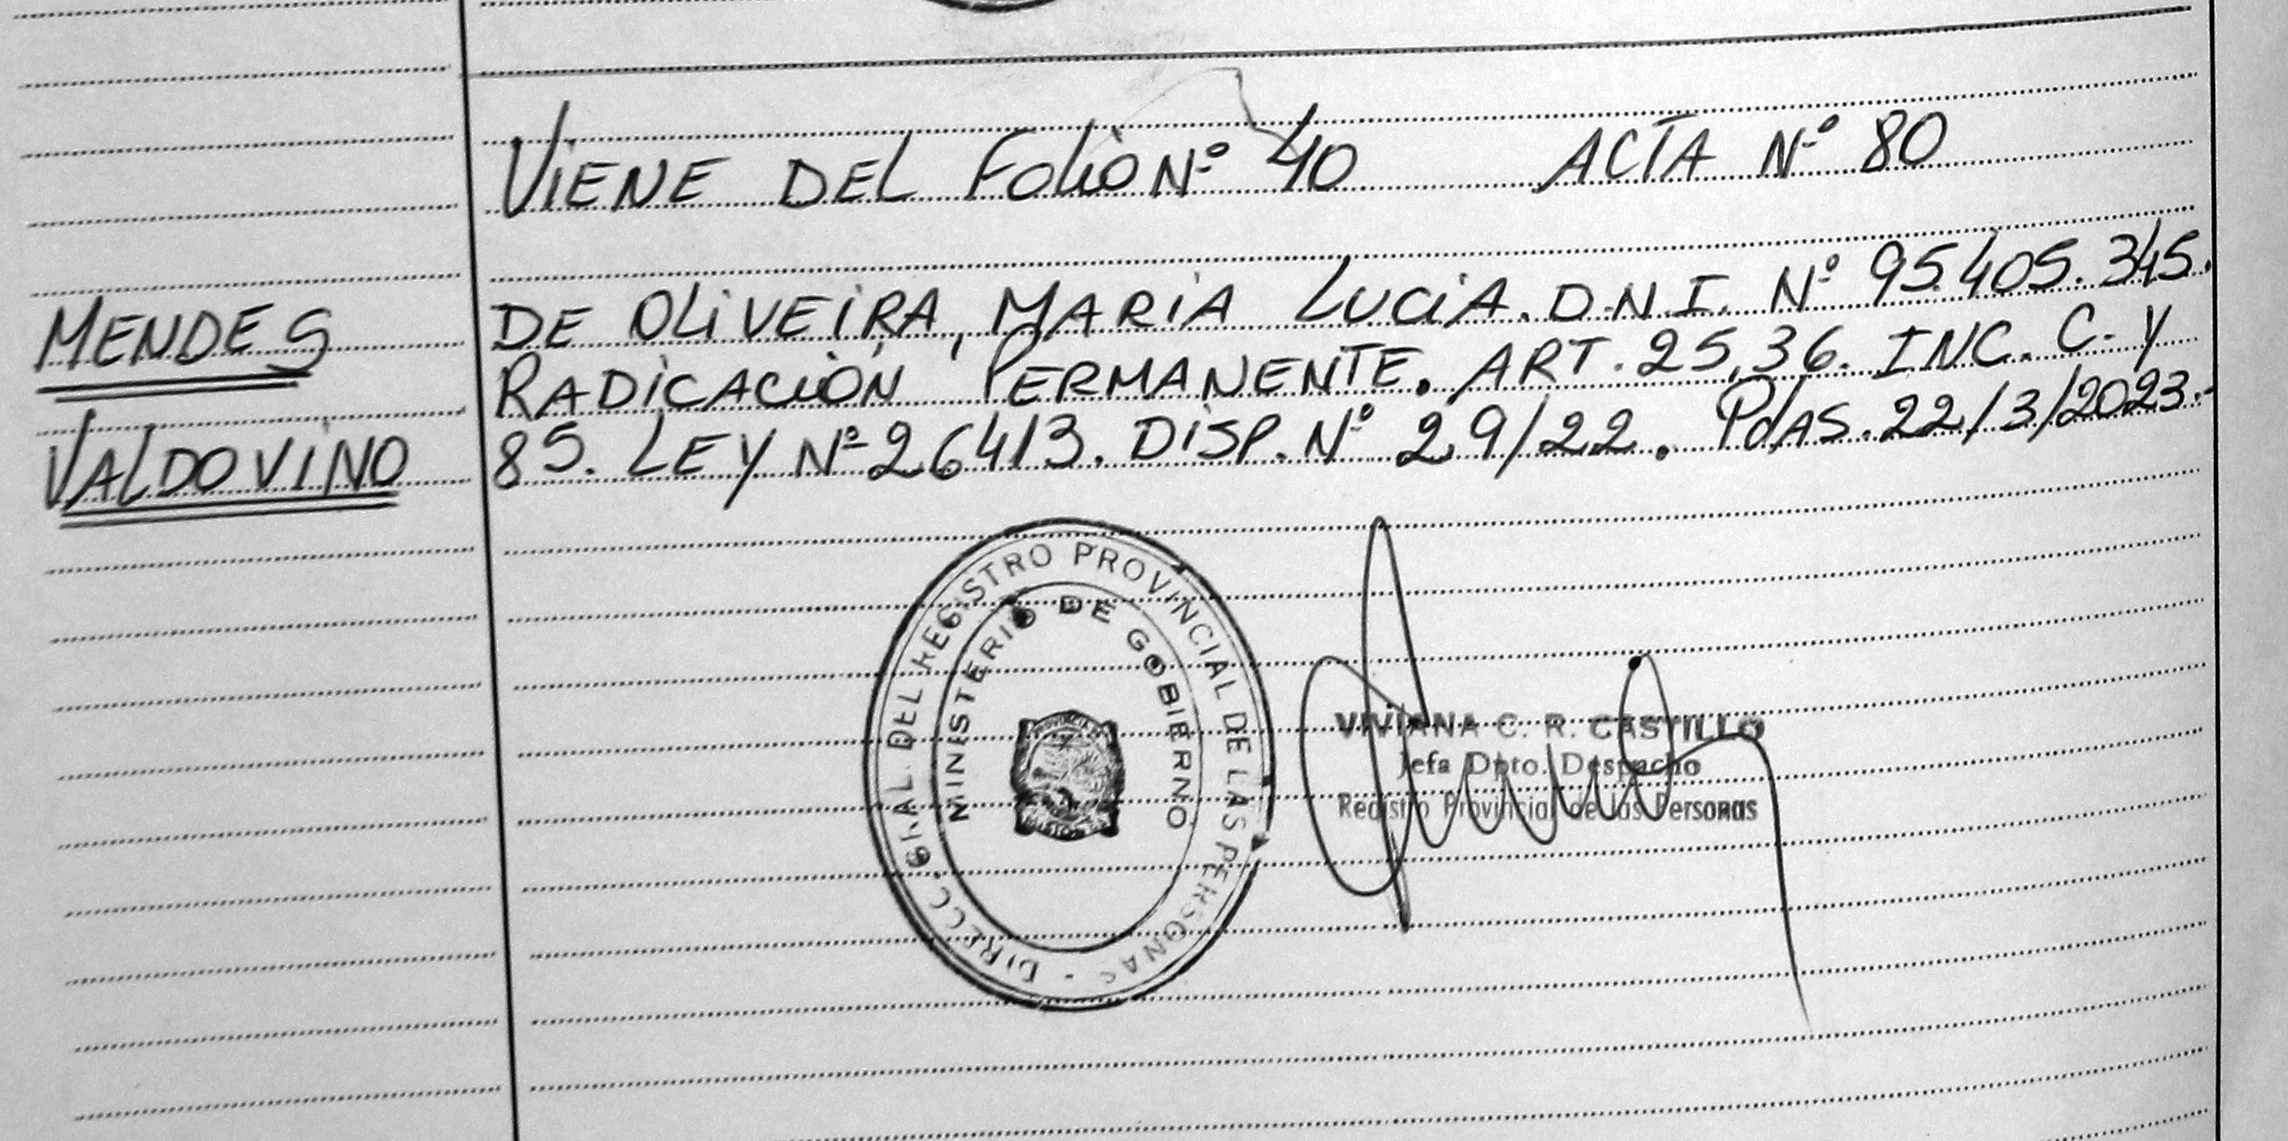 VIENE DEL FOLIO Nº 40 ACTA Nº 80
MENDES
VALDOVINO
DE OLIVEIRA, MARIA LUCIA. D.N.I. Nº 95.405.345.
RADICACIÓN PERMANENTE. ART. 25,36. INC. C. Y
85. LEY Nº 26413. DISP. Nº 29/22. Pdas. 22/3/2023.-
DIRECC. GRAL. DEL REGISTRO PROVINCIAL DE LAS PERSONAS -
MINISTERIO DE GOBIERNO
VIVIANA C. R. CASTILLO
Jefa Dpto. Despacho
Registro Provincial de las Personas